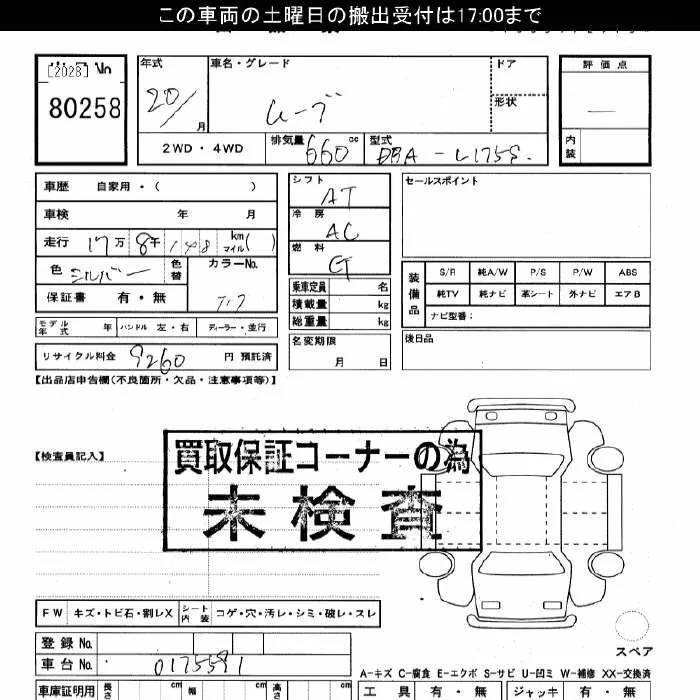 この車両の土曜日の搬出受付は17:00まで
[2028] No
80258
年式 車名・グレード ドア 評価点
20/ 月 ムーブ 形状
2WD・4WD 排気量 660 cc 型式 DBA-L175S. 内装
車歴 自家用・( )
車検 年 月
走行 17万 8千 148 km マイル ( )
色 シルバー 色替 カラーNo.
保証書 有・無
モデル年式 年 ハンドル 左・右 ディーラー・並行
リサイクル料金 9260 円 預託済
シフト AT
冷房 AC
燃料
乗車定員 名
積載量 kg
総重量 kg
名変期限
月 日
セールスポイント
装備品 S/R 純A/W P/S P/W ABS
純TV 純ナビ 革シート 外ナビ エアB
ナビ型番:
後日品
【出品店申告欄(不良箇所・欠品・注意事項等)】
【検査員記入】
買取保証コーナーの為
未検査
FW キズ・トビ石・割レX シート内装 コゲ・穴・汚レ・シミ・破レ・スレ
登録No.
車台No. 0175591
スペア
A-キズ C-腐食 E-エクボ S-サビ U-凹ミ W-補修 XX-交換済
車庫証明用 長さ cm 幅 cm 高さ cm 工具 有・無 ジャッキ 有・無